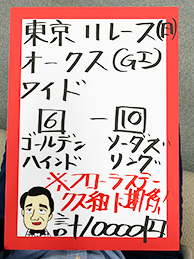 東京11レース(日)
オークス(GI)
ワイド
6 ー 10
ゴールデン ソーダズ
ハインド リング
※フローラステー
クス組に断然!
計10000円